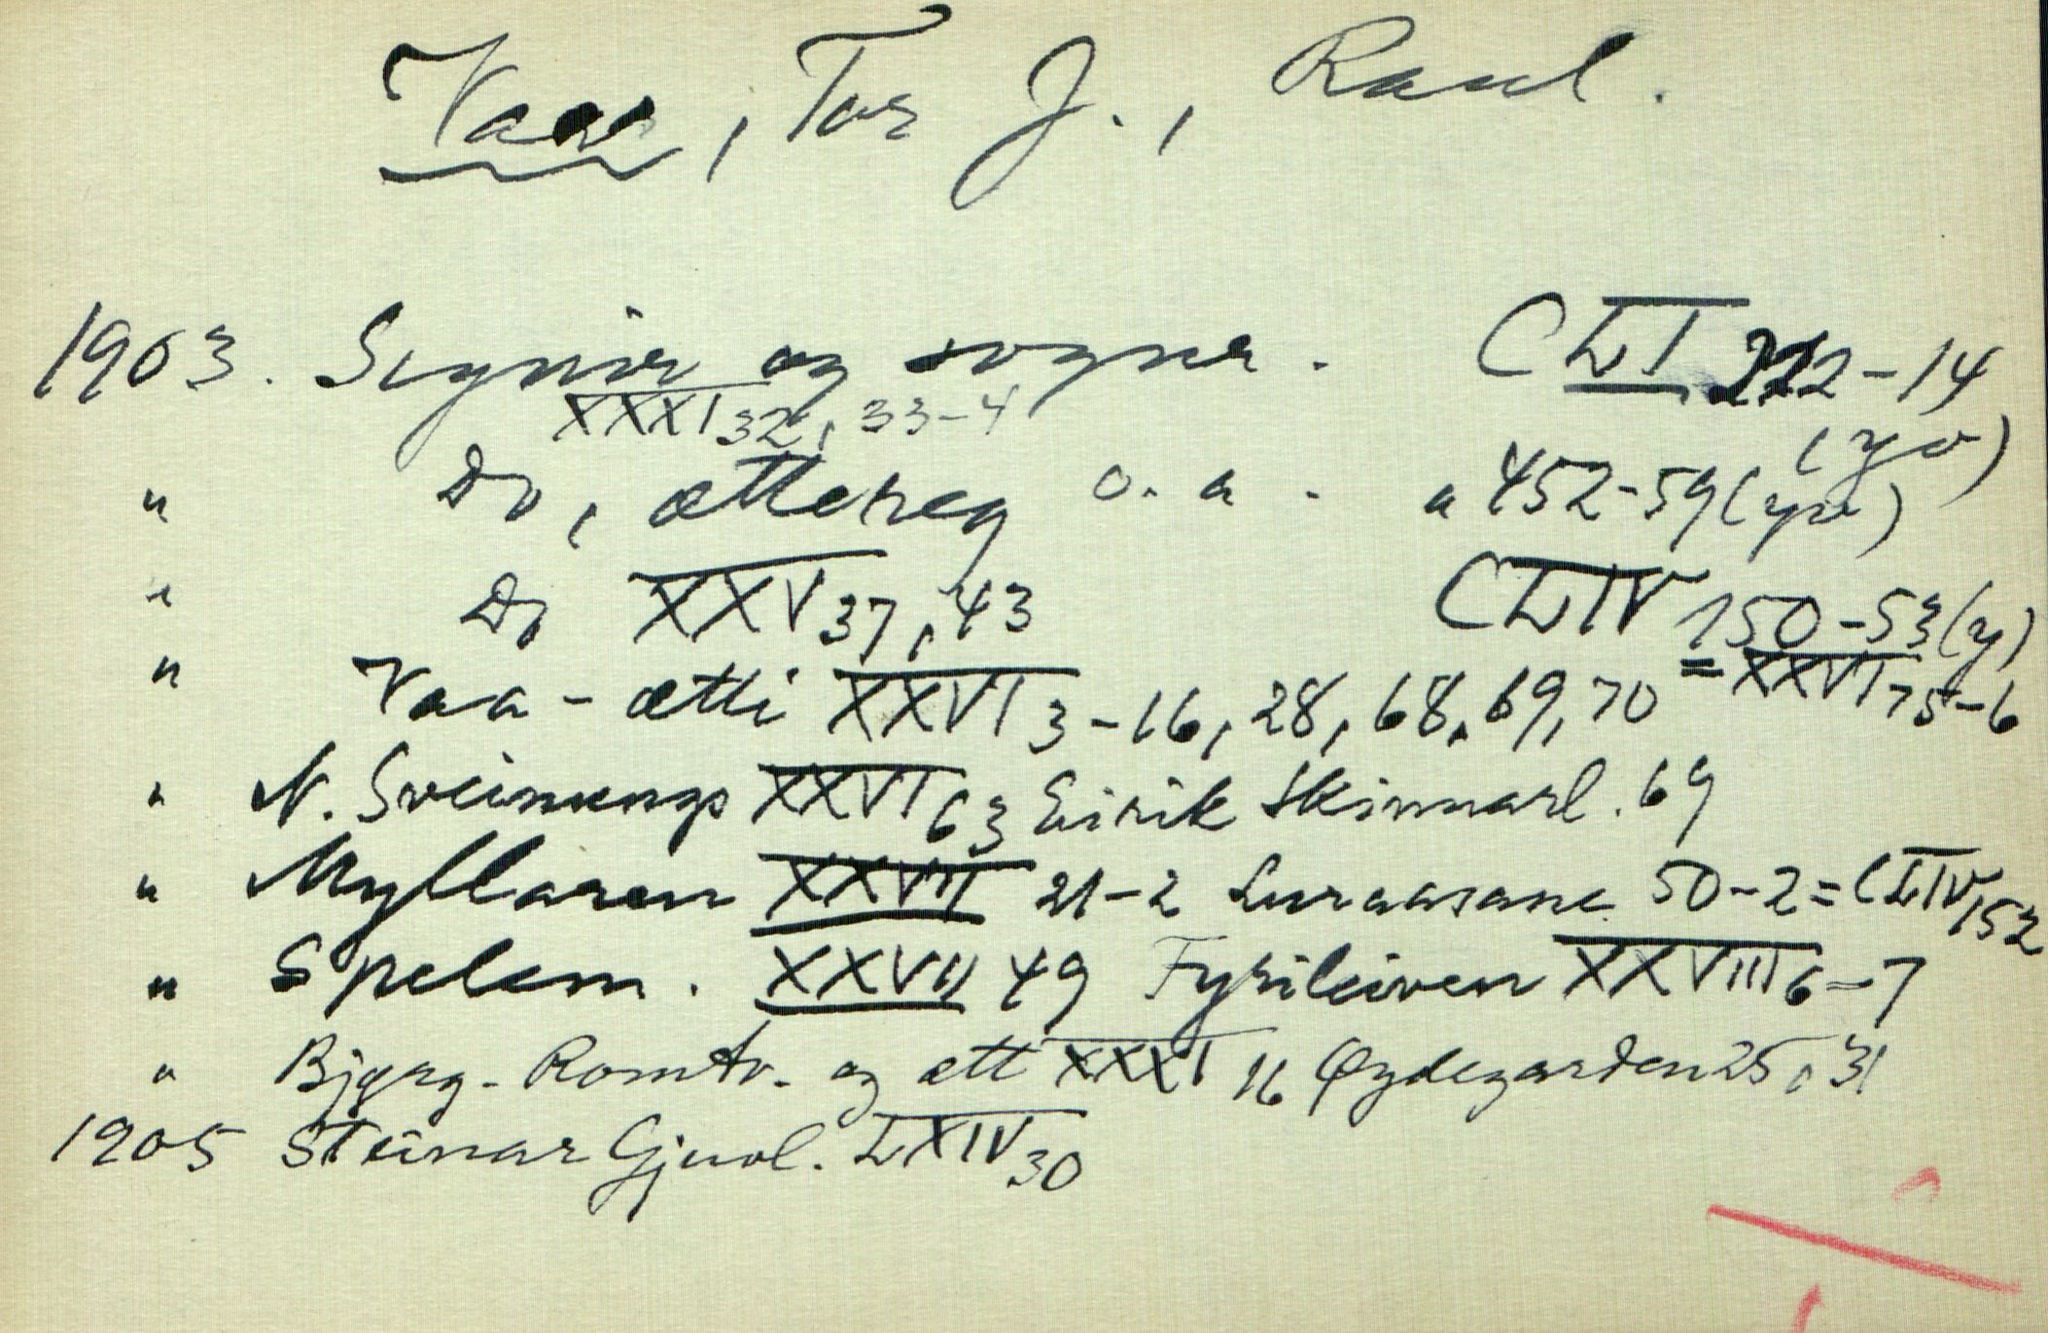 Vaa, Tor J., Raul.
1903. Segnir og sogner. CLI 212-14
XXXI 32, 33-4 (yv)
" Do, ættereg o. a. " 452-59 (yv)
" Do XXV 37, 43 CLIV 150-53 (y)
" Vaa-ætti XXVI 3-16, 28, 68, 69, 70 = XXVI 75-6
" N. Sveinungs XXVI 63 Eirik Skinnarl. 69
" Myllaren XXVII 21-2 Luraasane 50-2 = CLIV 152
" Spelem. XXVII 49 Fyrileiven XXVIII 6-7
" Bjørg-Romtv. og ætt XXXI 16 Øydegarden 25, 31
1905 Steinar Gjuvl. LXIV 30